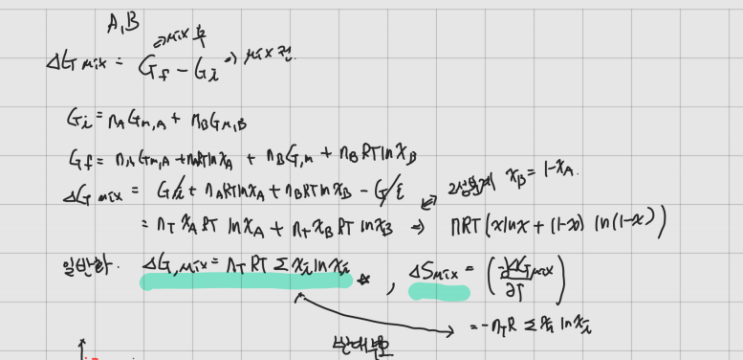 A,B
⇒ mix 후
ΔG mix = G_f - G_i ⇒ mix 전.
G_i = n_A G_m,A + n_B G_m,B
G_f = n_A G_m,A + n_A RT ln x_A + n_B G_,m + n_B RT ln x_B
ΔG mix = G_i + n_A RT ln x_A + n_B RT ln x_B - G_i 2성분계 x_B = 1-x_A.
= n_T x_A RT ln x_A + n_T x_B RT ln x_B ⇒ nRT (x ln x + (1-x) ln (1-x))
일반화. ΔG,mix = n_T RT Σ x_i ln x_i ☆ , ΔS mix = (∂ΔG mix / ∂T)
= -n_T R Σ x_i ln x_i
반대부호